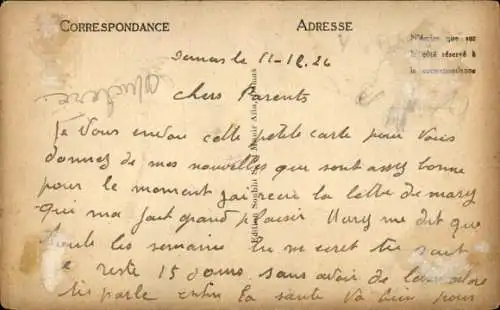 CORRESPONDANCE
ADRESSE
N'écrire que sur
le côté réservé à
la correspondance
Damas le 11-12. 26
chers Parents
Je vous envoie cette petite carte pour vous
donnez de mes nouvelles que sont assez bonne
pour le moment j'ai recu la lettre de mary
qui ma fait grand plaisir Mary me dit que
toute les semaine tu me ecret tu sait
je reste 15 jours sans avoir de
entre la santé va bien pour
Edition Sophia